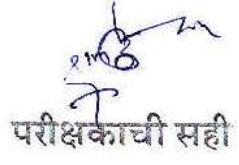 परीक्षकाची सही